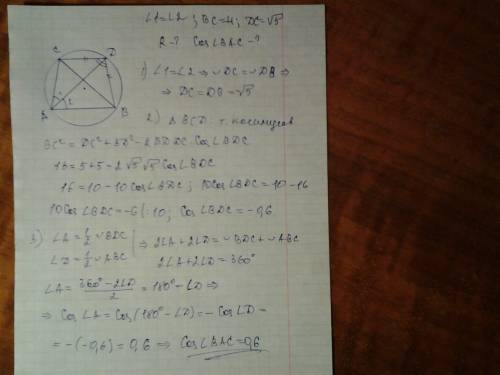 ∠1=∠2 ; BC=4; DC=√5
R-? Cos∠BAC-?
C D
A B
1 2
1) ∠1=∠2 ⇒ ◡DC=◡DB ⇒
⇒ DC=DB=√5
2) ΔBCD т. косинусов
BC²=DC²+BD²-2BD·DC·Cos∠BDC
16=5+5-2√5√5Cos∠BDC
16=10-10Cos∠BDC; 10Cos∠BDC=10-16
10Cos∠BDC=-6|:10; Cos∠BDC=-0,6
3) ∠A=½◡BDC
∠D=½◡ABC
⇒ 2∠A+2∠D=◡BDC+◡ABC
2∠A+2∠D=360°
∠A=(360°-2∠D)/2=180°-∠D ⇒
⇒ Cos∠A=Cos(180°-∠D)=-Cos∠D=
=-(-0,6)=0,6 ⇒ Cos∠BAC=0,6